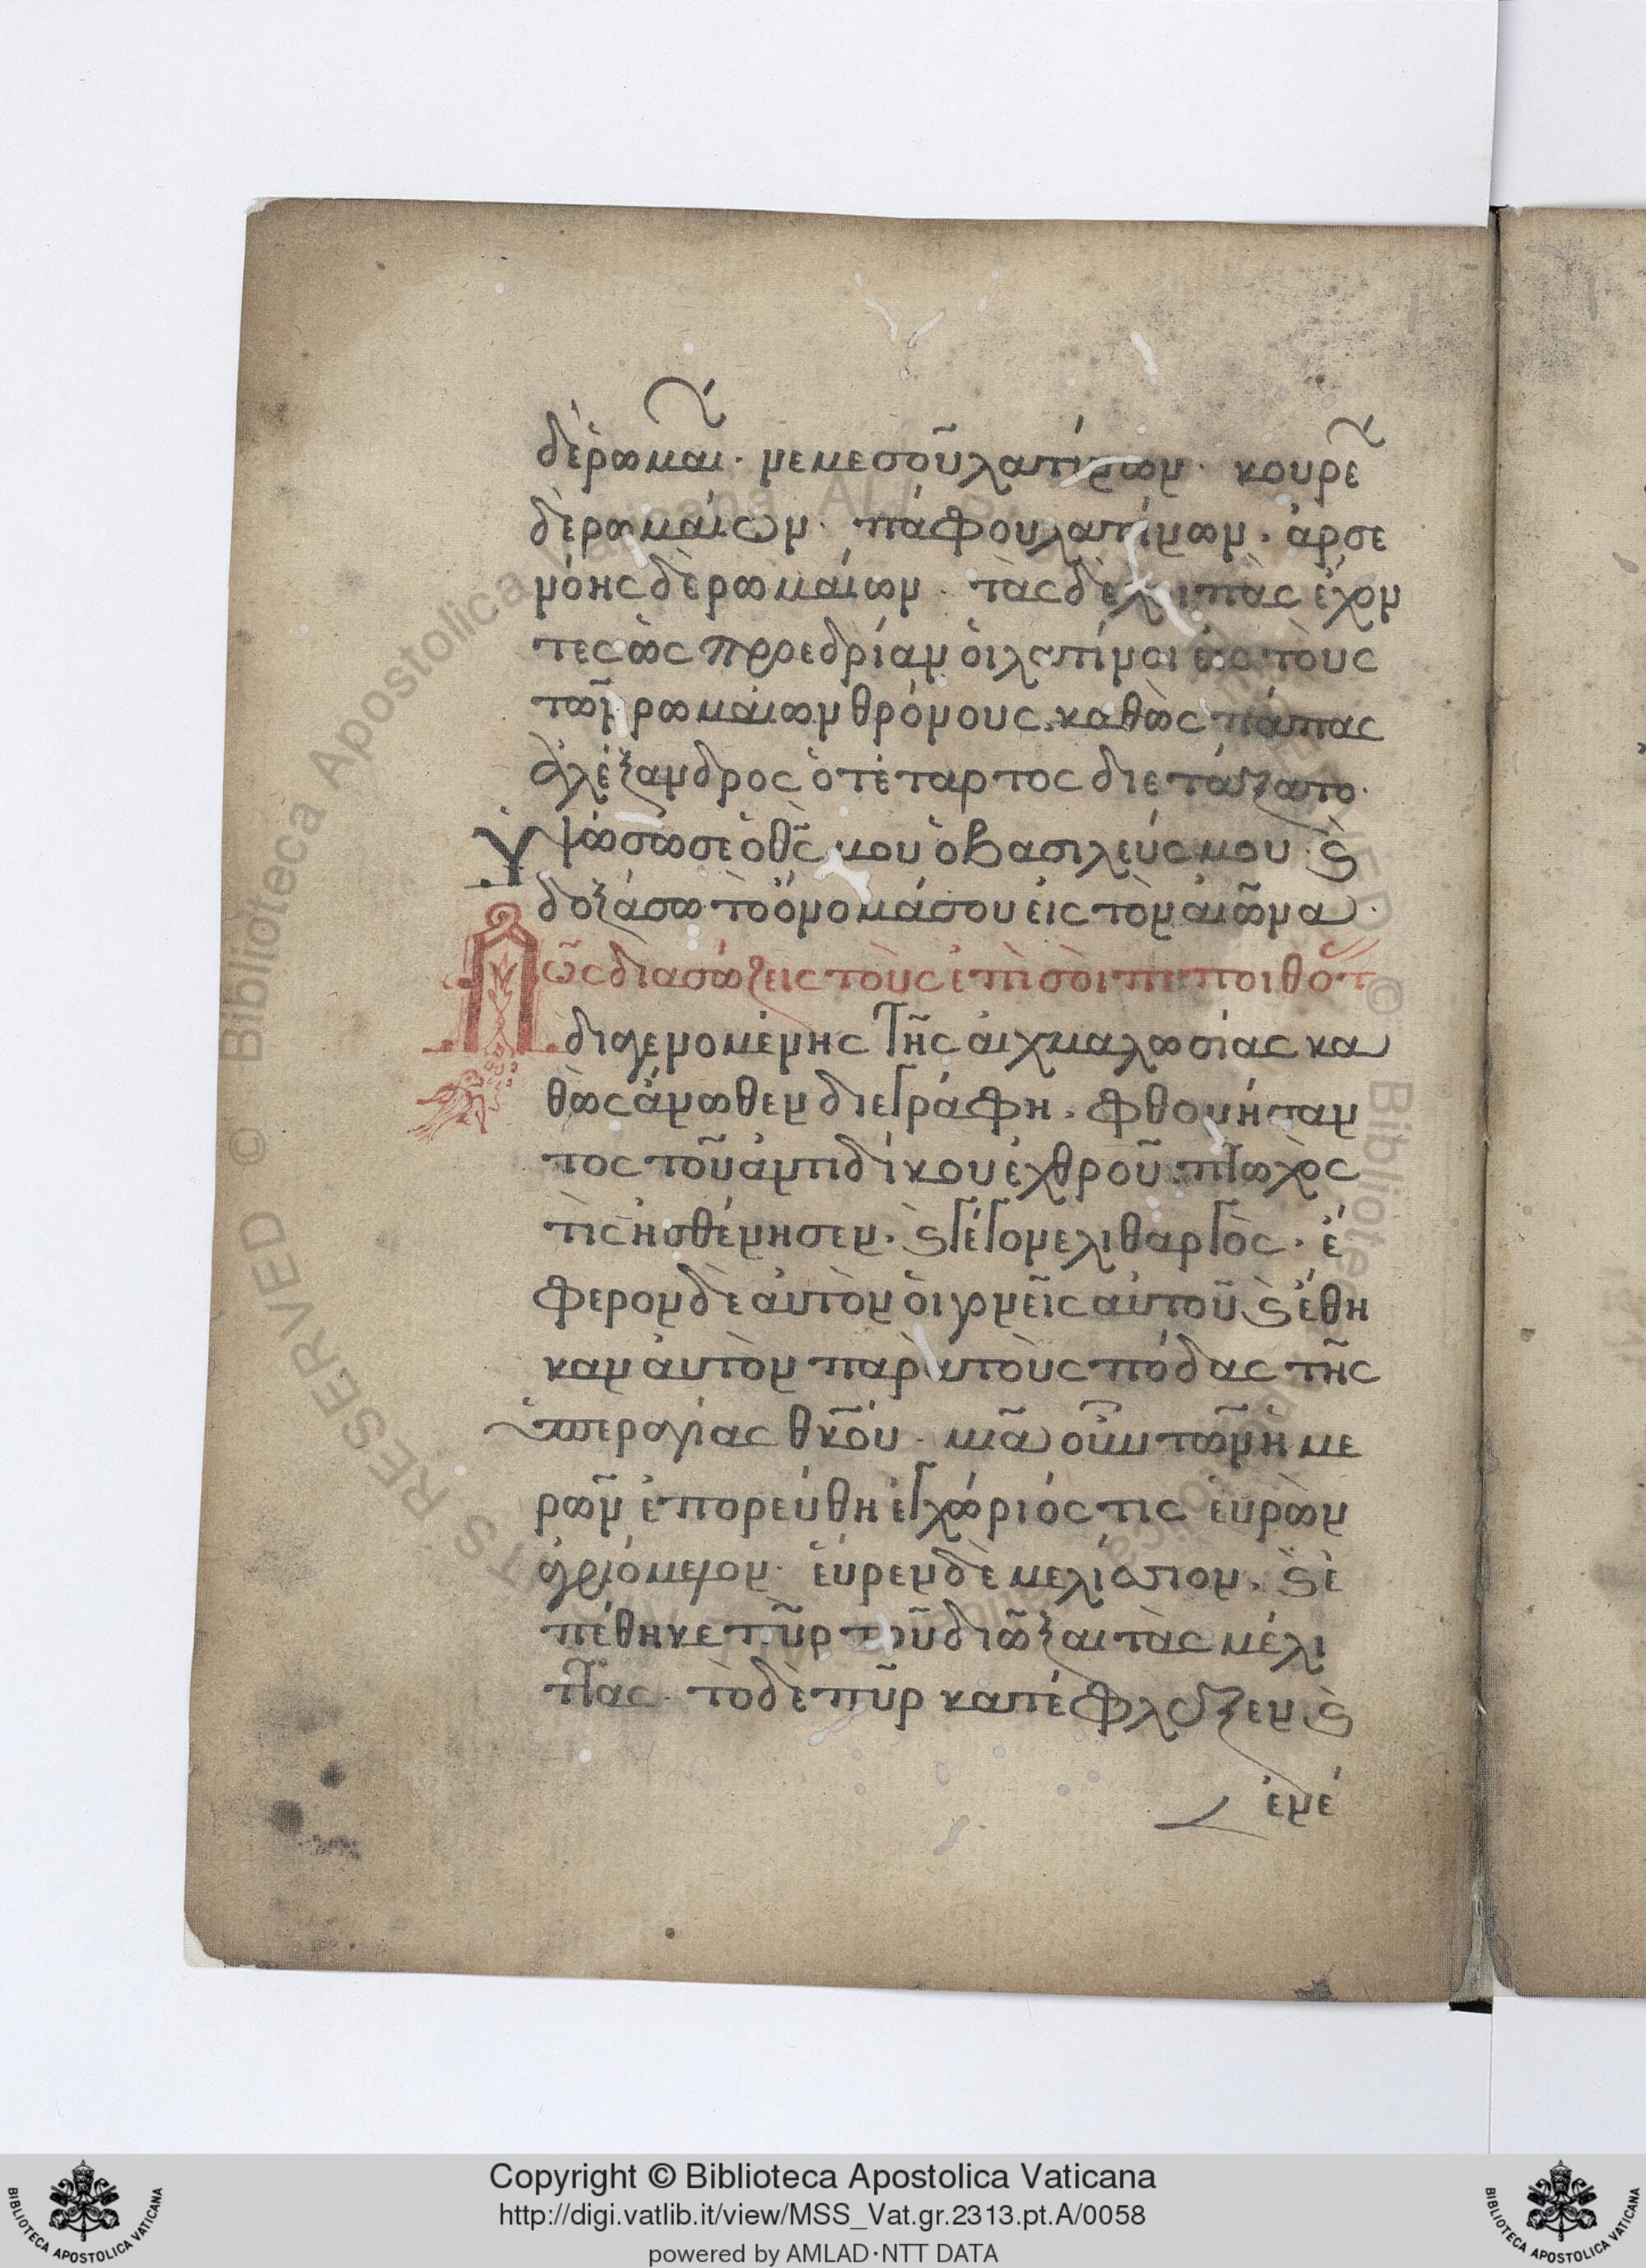 δέρωμαι̃· μεμεσοῦ λατίνων· κουρε͂
δὲ ρωμαίων· πάφου λατίνων· ἀρσε
νόης δὲ ρωμαίων· τὰς δὲ λοιπὰς ἔχον
τες ὡς προεδρίαν οἱ λατίνοι εἰς τοὺς
τῶν ρωμαίων θρόνους, καθὼς πάπας
ἀλέξανδρος ὁ τέταρτος διετάξατο·
Ὑψώσω σε ὁ θς̃ μου ὁ βασιλεύς μου· ϛ̀
δοξάσω τὸ ὄνομά σου εἰς τὸν αἰῶνα·
Πῶς διασώζεις τοὺς ἐπὶ σοὶ πεποιθότ
διαγενομένης τῆς αἰχμαλωσίας κα
θὼς ἄνωθεν διεγράφη, φθονήσαν
τος τοῦ ἀντιδίκου ἐχθροῦ, πτωχὸς
τὶς ἠσθένησεν, ϛ̀ γέγονε λιθαργὸς· ἔ
φερον δὲ αὐτὸν οἱ γονεῖς αὐτοῦ, ϛ̀ ἔθη
καν αὐτὸν παρὰ τοὺς πόδας τῆς
ὑπεραγίας θκ͂ου· μιᾶ οὖν τῶν ἡμε
ρῶν ἐπορεύθη ἐγχώριός τις εὑρὼν
ἀγριόμελον· εὗρεν δὲ μελίσσιον, ϛ̀ ἐ
πέθηκε πῦρ τοῦ διῶξαι τὰς μέλι
ττας· τὸ δὲ πῦρ κατέφλεξεν ϛ̀
ἐνέ
Copyright © Biblioteca Apostolica Vaticana
http://digi.vatlib.it/view/MSS_Vat.gr.2313.pt.A/0058
powered by AMLAD·NTT DATA